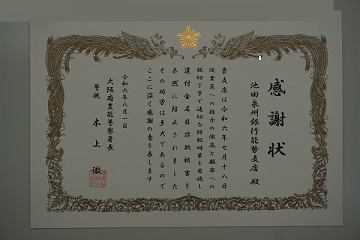 感謝状
池田泉州銀行能勢支店 殿
貴支店は令和六年七月十八日
従業員への指示の徹底と顧客への
親切丁寧で適切な防犯対策を実施し
還付金名目詐欺被害を
未然に防止されました
その功労は多大であるので
ここに深く感謝の意を表します
令和六年八月一日
大阪府豊能警察署長
警視 木上 徹